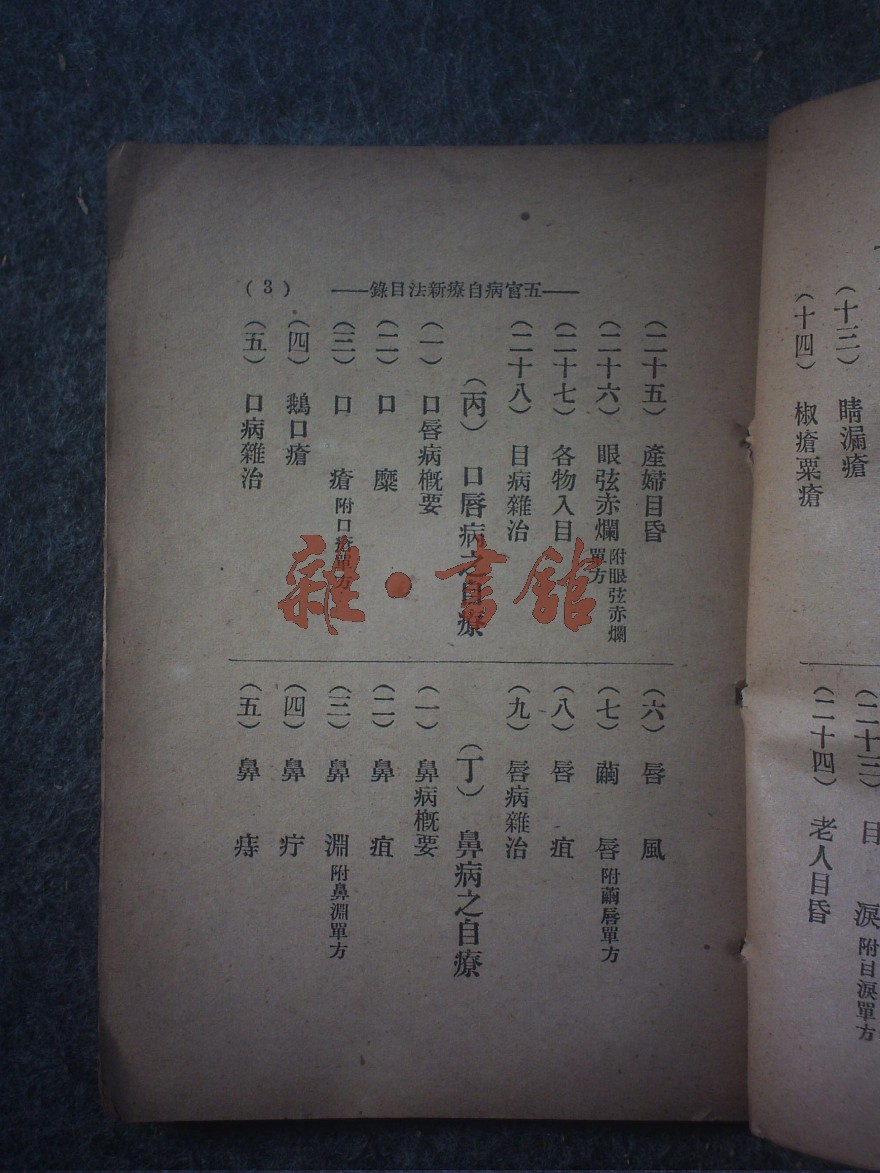 ——五官病自療新法目錄——
(3)
(二十五) 產婦目昏
(二十六) 眼弦赤爛 附眼弦赤爛單方
(二十七) 各物入目
(二十八) 目病雜治
(丙) 口唇病之自療
(一) 口唇病概要
(二) 口糜
(三) 口瘡 附口瘡單方
(四) 鵝口瘡
(五) 口病雜治
(六) 唇風
(七) 繭唇 附繭唇單方
(八) 唇疽
(九) 唇病雜治
(丁) 鼻病之自療
(一) 鼻病概要
(二) 鼻疽
(三) 鼻淵 附鼻淵單方
(四) 鼻疔
(五) 鼻痔
(十三) 睛漏瘡
(十四) 椒瘡粟瘡
(二十三) 目淚 附目淚單方
(二十四) 老人目昏
雜·書館